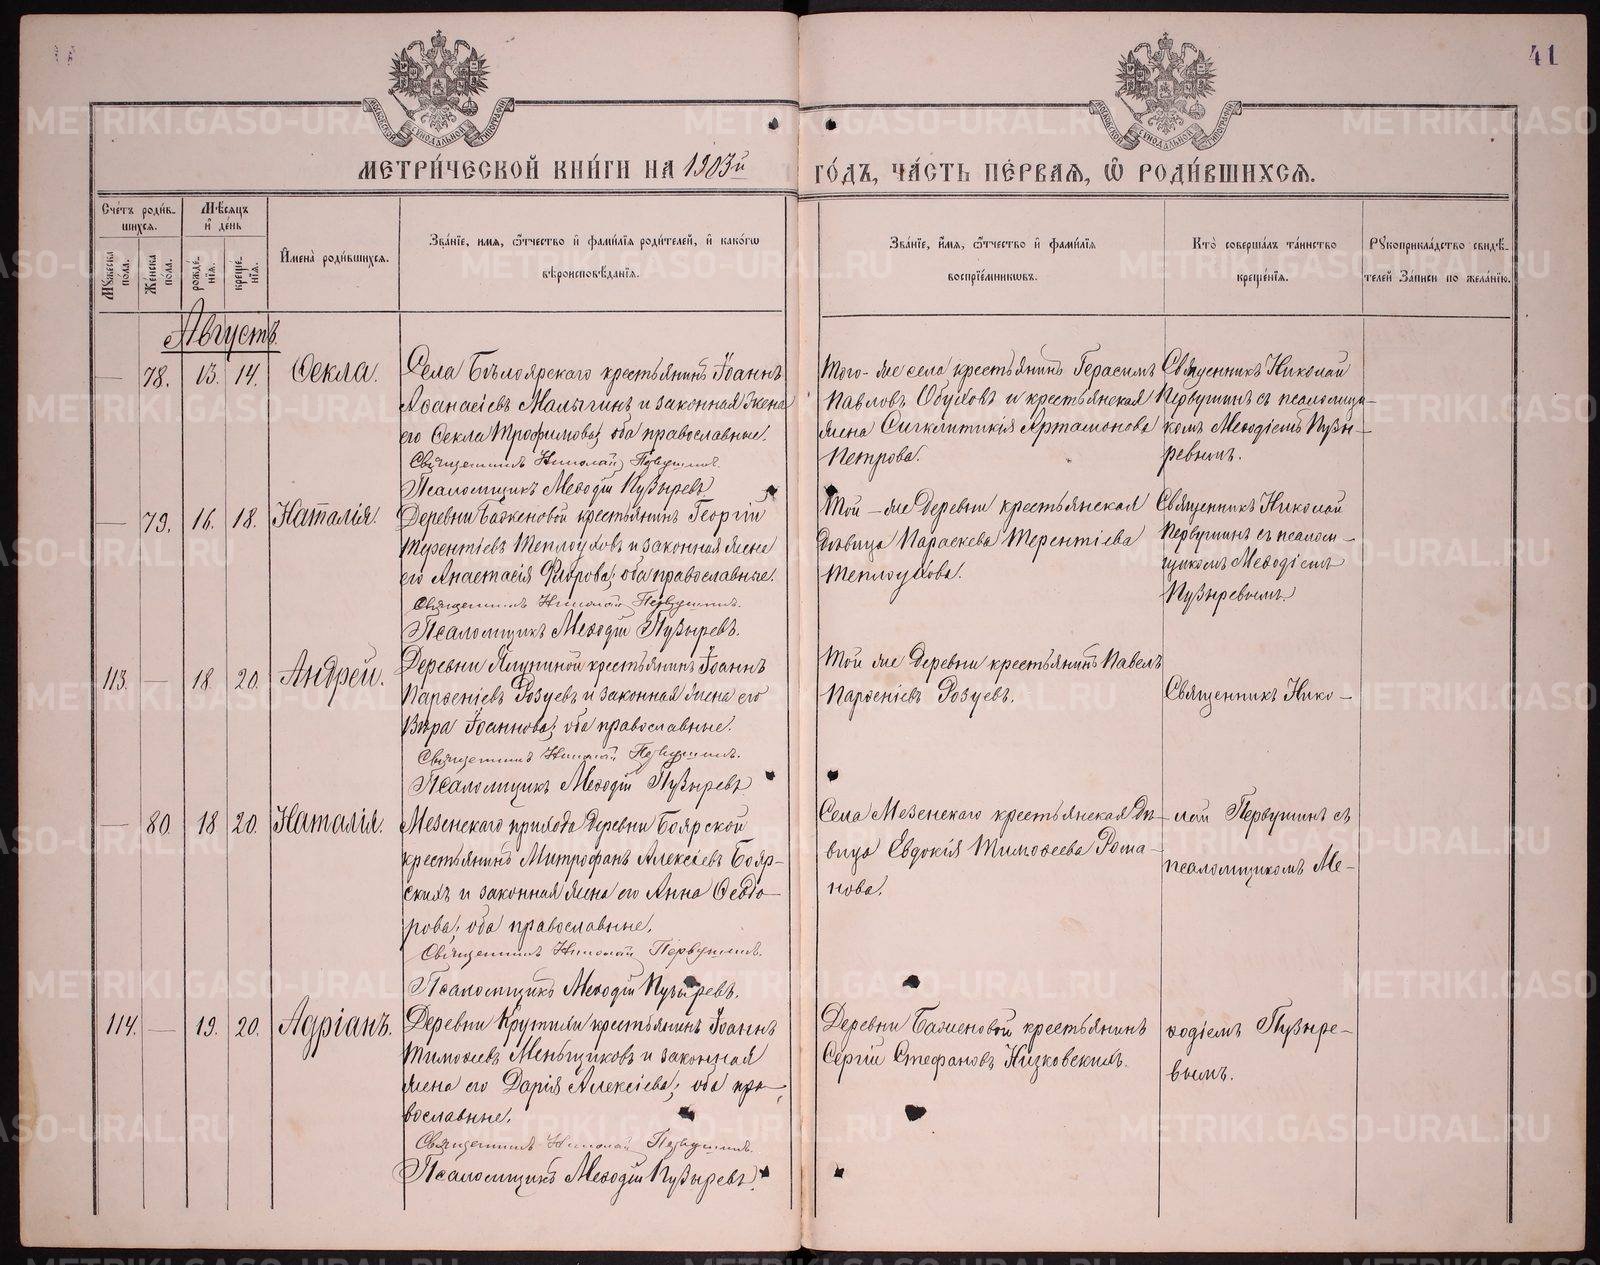 41
МОСКОВСКОЙ СѴНОДАЛЬНОЙ ТИПОГРАФІИ
МОСКОВСКОЙ СѴНОДАЛЬНОЙ ТИПОГРАФІИ
МЕТРИ́ЧЕСКОЙ КНИ́ГИ НА 1903й ГО́ДЪ, ЧА́СТЬ ПЕ́РВАѦ, Ѽ РОДИ́ВШИХСѦ.
Сче́тъ роди́в-
шихсѧ.
Мꙋжеска по́ла.
Же́нска по́ла.
Мѣ́сѧцъ
и҆ де́нь
рожде́-
нїѧ.
креще́-
нїѧ.
И҆мена̀ роди́вшихсѧ.
Зва́нїе, и҆мѧ, ѻ҆́тчество и҆ фами́лїѧ роди́телей, и҆ како́гѡ
вѣроисповѣ́данїѧ.
Зва́нїе, и҆́мѧ, ѻ҆́тчество и҆ фами́лїѧ
воспрїе́мникѡвъ.
Кто̀ соверша́лъ та́инство
креще́нїѧ.
Рꙋкоприкла́дство свидѣ́-
телей За́писи по жела́нїю.
Августъ.
— 78. 13. 14. Ѳекла.
Села Бѣлоярскаго крестьянинъ Іоаннъ
Аѳанасіевъ Малыгинъ и законная жена
его Ѳекла Трофимова; оба православные.
Священникъ Николай Первушинъ.
Псаломщикъ Меѳодій Пузыревъ
Того-же села крестьянинъ Герасимъ
Павловъ Обуховъ и крестьянская
жена Сигклитикія Артамонова
Петрова.
Священникъ Николай
Первушинъ съ псаломщи-
комъ Меѳодіемъ Пузы-
ревымъ.
— 79. 16. 18. Наталія.
Деревни Баженовой крестьянинъ Георгій
Терентіевъ Теплоуховъ и законная жена
его Анастасія Флорова; оба православные.
Священникъ Николай Первушинъ.
Псаломщикъ Меѳодій Пузыревъ.
Той-же деревни крестьянская
дѣвица Параскева Терентіева
Теплоухова.
Священникъ Николай
Первушинъ съ псалом-
щикомъ Меѳодіемъ
Пузыревымъ.
113. — 18. 20. Андрей.
Деревни Ялуниной крестьянинъ Іоаннъ
Парѳеніевъ Розуевъ и законная жена его
Вѣра Іоаннова; оба православные.
Священникъ Николай Первушинъ.
Псаломщикъ Меѳодій Пузыревъ
Той же деревни крестьянинъ Павелъ
Парѳеніевъ Розуевъ.
Священникъ Нико-
— 80. 18 20. Наталія.
Мезенскаго прихода деревни Боярской
крестьянинъ Митрофанъ Алексіевъ Бояр-
скихъ и законная жена его Анна Ѳеодо-
рова; оба православные.
Священникъ Николай Первушинъ.
Псаломщикъ Меѳодій Пузыревъ.
Села Мезенскаго крестьянская дѣ-
вица Евдокія Тимоѳеева Рома-
нова.
лай Первушинъ съ
псаломщикомъ Ме-
114. — 19. 20. Адріанъ.
Деревни Крутихи крестьянинъ Іоаннъ
Тимоѳеевъ Меньщиковъ и законная
жена его Дарія Алексіева; оба пра-
вославные.
Священникъ Николай Первушинъ.
Псаломщикъ Меѳодій Пузыревъ.
Деревни Баженовой крестьянинъ
Сергій Стефановъ Низковскихъ.
ѳодіемъ Пузыре-
вымъ.
METRIKI.GASO-URAL.RU